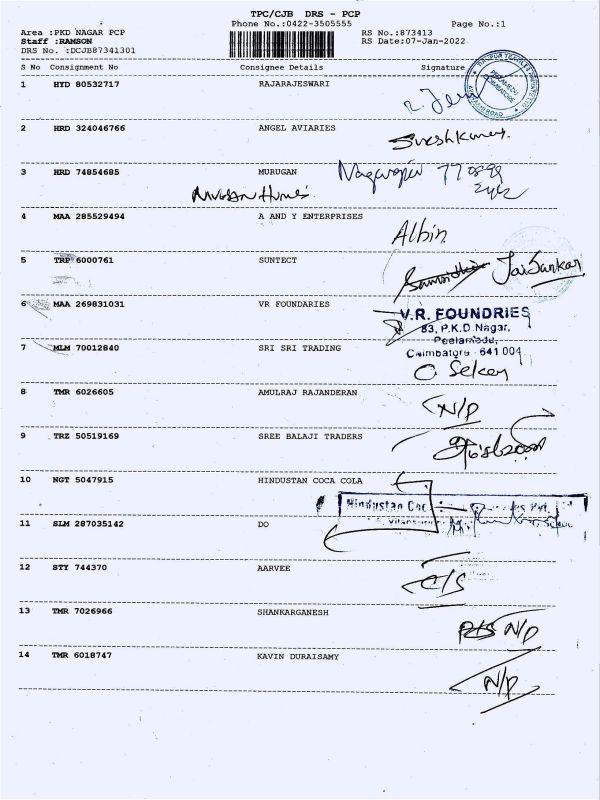 TPC/CJB DRS - PCP
Phone No.:0422-3505555
Page No.:1
Area :PKD NAGAR PCP
Staff :RAMSON
DRS No. :DCJB87341301
RS No.:873413
RS Date:07-Jan-2022
S No Consignment No Consignee Details Signature
1 HYD 80532717 RAJARAJESWARI
2 HRD 324046766 ANGEL AVIARIES
Sureshkumar.
3 HRD 74854685 MURUGAN
4 MAA 285529494 A AND Y ENTERPRISES
Albin
5 TRP 6000761 SUNTECT
JaiSankar
6 MAA 269831031 VR FOUNDARIES
V.R. FOUNDRIES
83, P.K.D.Nagar,
Peelamedu,
Coimbatore - 641 004
7 MLM 70012840 SRI SRI TRADING
8 TMR 6026605 AMULRAJ RAJANDERAN
N/P
9 TRZ 50519169 SREE BALAJI TRADERS
10 NGT 5047915 HINDUSTAN COCA COLA
Hindustan
11 SLM 287035142 DO
12 STY 744370 AARVEE
C/S
13 TMR 7026966 SHANKARGANESH
N/P
14 TMR 6018747 KAVIN DURAISAMY
N/P